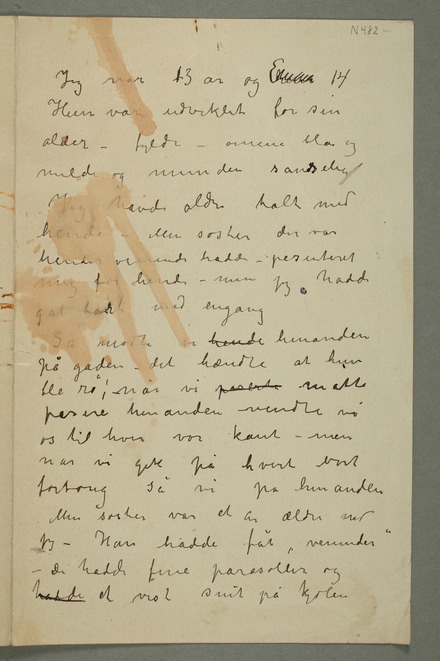 N 482
Jeg var 13 år og Emma 14
Hun var udviklet for sin
alder – fylde – øinene bla og
milde og munden sandselig
Jeg havde aldri talt med
hende – Min søster der var
hendes veninde hadde – præsenteret
mig for hende – men jeg hadde
gåt bort med engang
Så mødte vi hende hinanden
på gaden – det hændte at hun
ble rø, når vi paserte måtte
pasere hinanden – vendte vi
os til hver vor kant – men
når vi gik på hvert vort
fortoug så vi på hinanden
Min søster var et år ældre end
jeg – Hun hadde fåt „veninder"
– De hadde fine parasoller og
hadde et vist snit på kjolen